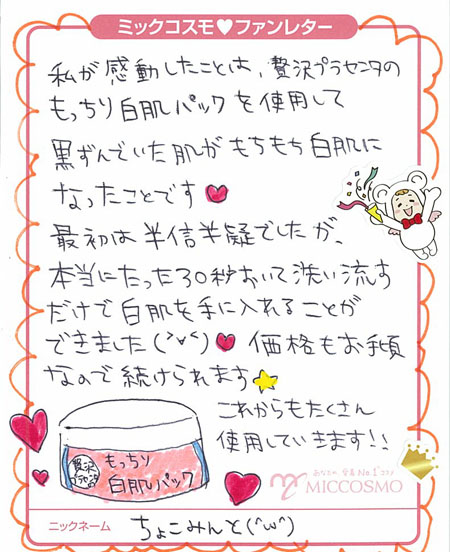 ミックコスモ♥ファンレター
私が感動したことは、贅沢プラセンタの
もっちり白肌パックを使用して
黒ずんでいた肌がもちもち白肌に
なったことです♥
最初は半信半疑でしたが、
本当にたった30秒おいて洗い流す
だけで白肌を手に入れることが
できました(^∀^)♥価格もお手頃
なので続けられます★
これからもたくさん
使用していきます!!
贅沢
プラセンタ
もっちり
白肌パック
MICCOSMO
ニックネーム ちょこみんと(^ω^)